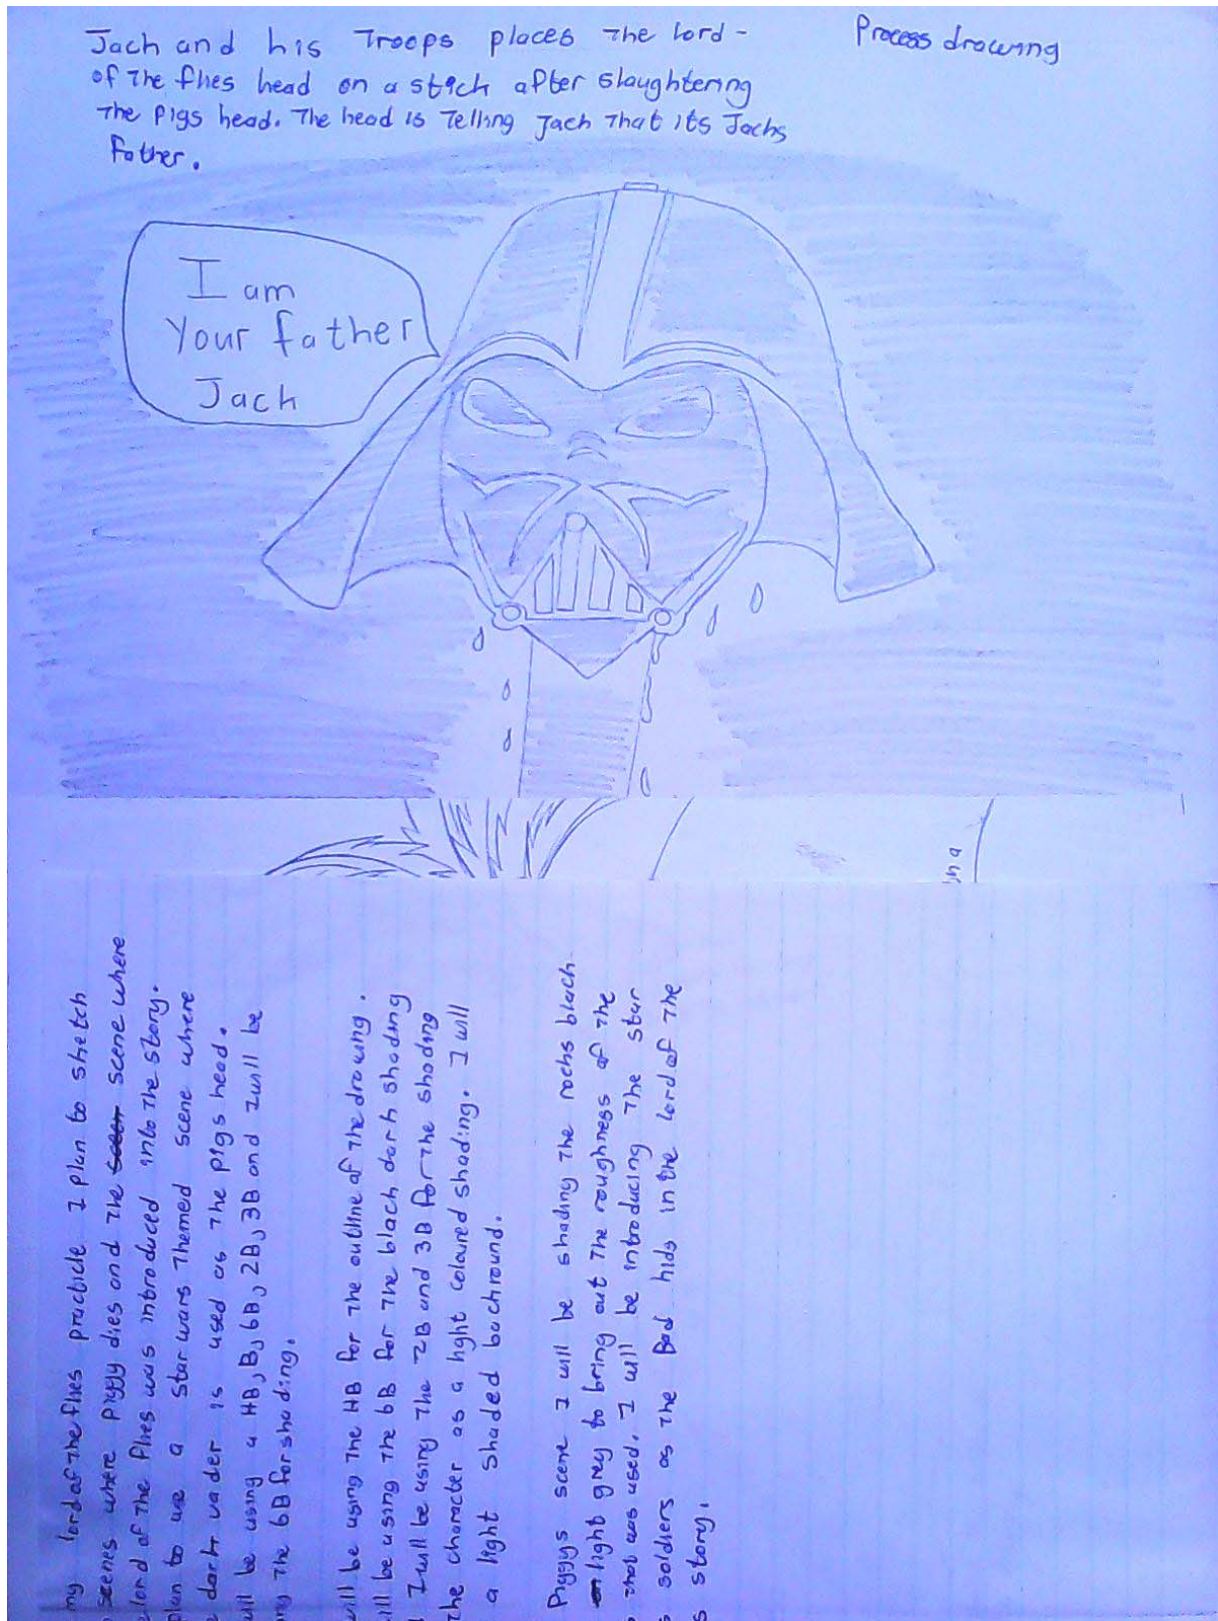 Jach and his Troops places The lord -
of The flies head on a stick after slaughtering
The pigs head. The head is Telling Jach That its Jachs
father.
Process drawing
I am
Your father
Jach
my lord of the flies practicle I plan to sketch
scenes where piggy dies and the scene where
lord of the flies was introduced into the story.
plan to use a star wars themed scene where
darth vader is used as the pigs head.
will be using a HB, B, 6B, 2B, 3B and I will be
the 6B for shading.
will be using the HB for the outline of the drawing.
will be using the 6B for the blach darh shading
I will be using the 2B and 3B for the shading
the character as a light coloured shading. I will
a light shaded bachround.
Piggys scene I will be shading the rochs blach
light grey to bring out the roughness of the
that was used. I will be introducing the star
soldiers as the Bad hids in the lord of the
story.